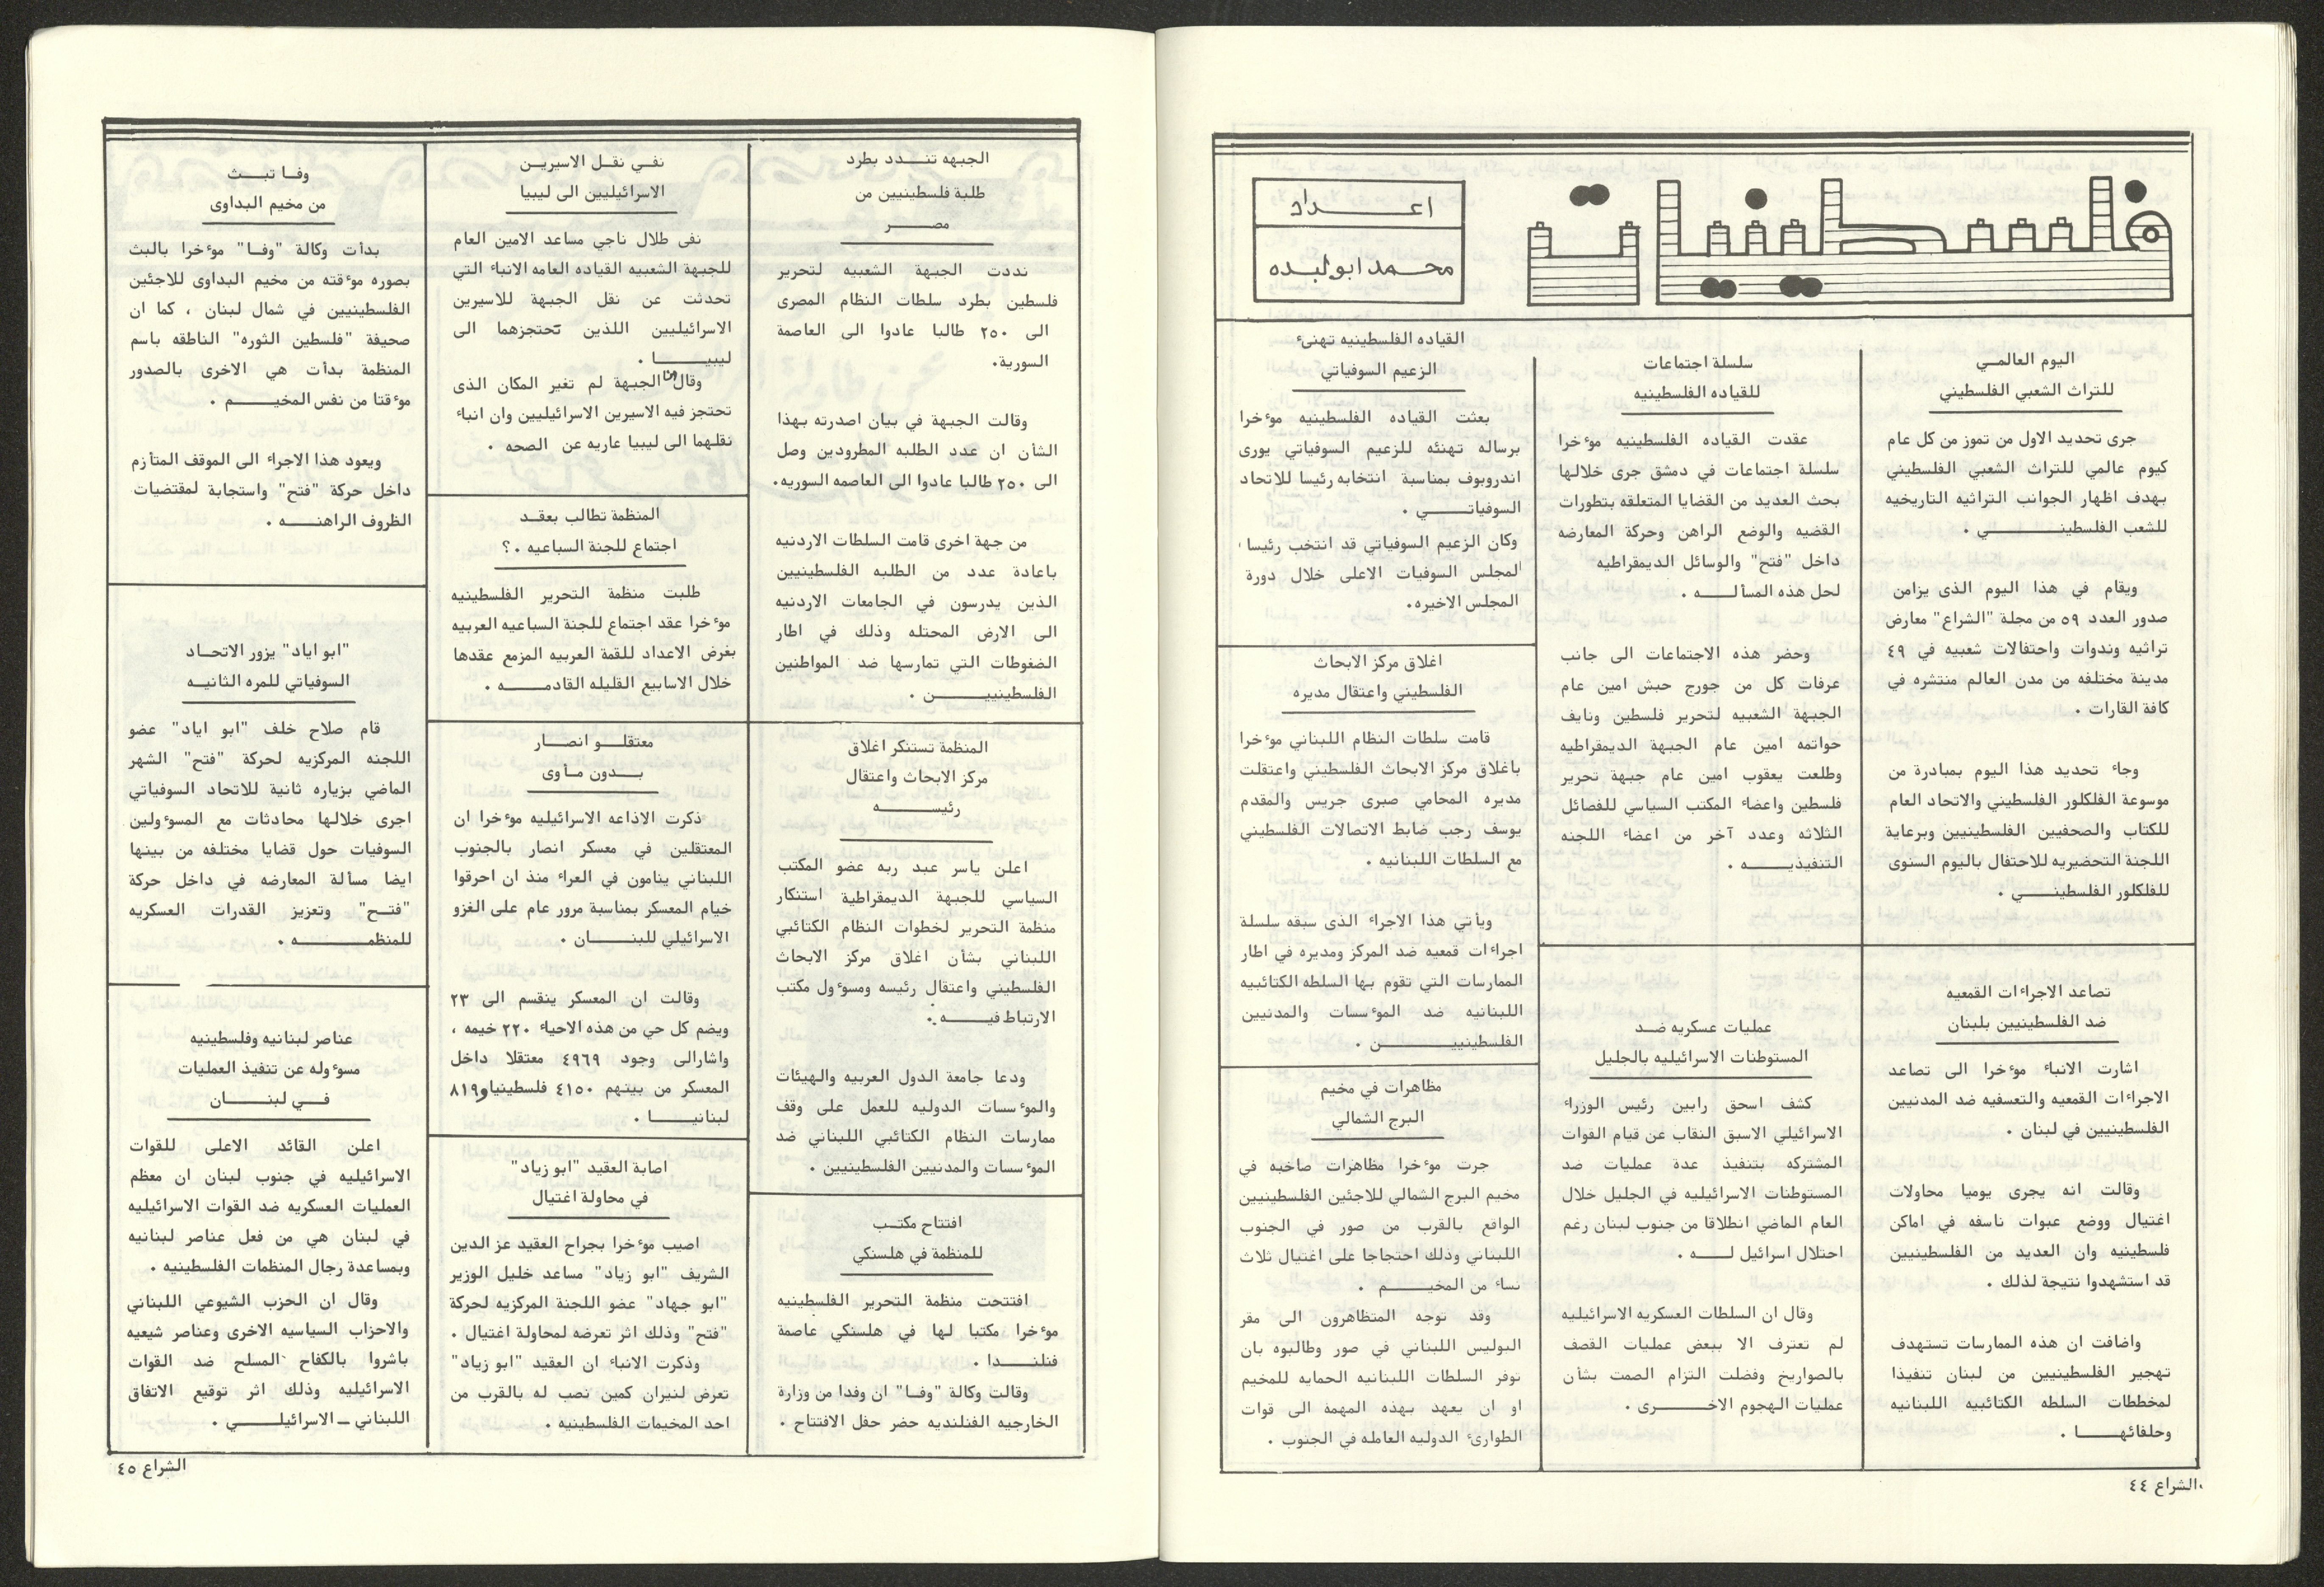 فلسطينيات
اعــداد
محمد ابو لبده
اليوم العالمــي
للتراث الشعبي الفلسطيني
جرى تحديد الاول من تموز من كل عام
كيوم عالمي للتراث الشعبي الفلسطيني
بهدف اظهار الجوانب التراثيه التاريخيه
للشعب الفلسطينـــــي .
ويقام في هذا اليوم الذى يزامن
صدور العدد ٥٩ من مجلة "الشراع" معارض
تراثيه وندوات واحتفالات شعبيه في ٤٩
مدينة مختلفه من مدن العالم منتشره في
كافة القارات .
وجاء تحديد هذا اليوم بمبادرة من
موسوعة الفلكلور الفلسطيني والاتحاد العام
للكتاب والصحفيين الفلسطينيين وبرعاية
اللجنة التحضيريه للاحتفال باليوم السنوى
للفلكلور الفلسطينــــي .
تصاعد الاجراءات القمعيه
ضد الفلسطينيين بلبنان
اشارت الانباء موءخرا الى تصاعد
الاجراءات القمعيه والتعسفيه ضد المدنيين
الفلسطينيين في لبنان .
وقالت انه يجرى يوميا محاولات
اغتيال ووضع عبوات ناسفه في اماكن
فلسطينيه وان العديد من الفلسطينيين
قد استشهدوا نتيجة لذلك .
واضافت ان هذه الممارسات تستهدف
تهجير الفلسطينيين من لبنان تنفيذا
لمخططات السلطه الكتائبيه اللبنانيه
وحلفائهــــا .
سلسلة اجتماعات
للقياده الفلسطينيه
عقدت القياده الفلسطينيه موءخرا
سلسلة اجتماعات في دمشق جرى خلالها
بحث العديد من القضايا المتعلقه بتطورات
القضيه والوضع الراهن وحركة المعارضه
داخل "فتح" والوسائل الديمقراطيه
لحل هذه المسألــــه .
وحضر هذه الاجتماعات الى جانب
عرفات كل من جورج حبش امين عام
الجبهة الشعبيه لتحرير فلسطين ونايف
حواتمه امين عام الجبهة الديمقراطيه
وطلعت يعقوب امين عام جبهة تحرير
فلسطين واعضاء المكتب السياسي للفصائل
الثلاثه وعدد آخر من اعضاء اللجنه
التنفيذيــــه .
عمليات عسكريه ضــد
المستوطنات الاسرائيليه بالجليل
كشف اسحق رابين رئيس الوزراء
الاسرائيلي الاسبق النقاب عن قيام القوات
المشتركه بتنفيذ عدة عمليات ضد
المستوطنات الاسرائيليه في الجليل خلال
العام الماضي انطلاقا من جنوب لبنان رغم
احتلال اسرائيل لـــه .
وقال ان السلطات العسكريه الاسرائيليه
لم تعترف الا ببعض عمليات القصف
بالصواريخ وفضلت التزام الصمت بشأن
عمليات الهجوم الاخـــــرى .
القياده الفلسطينيه تهنىء
الزعيم السوفياتي
بعثت القياده الفلسطينيه موءخرا
برساله تهنئه للزعيم السوفياتي يورى
اندروبوف بمناسبة انتخابه رئيسا للاتحاد
السوفياتــــي .
وكان الزعيم السوفياتي قد انتخب رئيسا
لمجلس السوفيات الاعلى خلال دورة
المجلس الاخيره.
اغلاق مركز الابحاث
الفلسطيني واعتقال مديره
قامت سلطات النظام اللبناني موءخرا
باغلاق مركز الابحاث الفلسطيني واعتقلت
مديره المحامي صبرى جريس والمقدم
يوسف رجب ضابط الاتصالات الفلسطيني
مع السلطات اللبنانيه .
ويأتي هذا الاجراء الذى سبقه سلسلة
اجراءات قمعيه ضد المركز ومديره في اطار
الممارسات التي تقوم بها السلطه الكتائبيه
اللبنانيه ضد الموءسسات والمدنيين
الفلسطينييــــــن .
مظاهرات في مخيم
البرج الشمالي
جرت موءخرا مظاهرات صاخبه في
مخيم البرج الشمالي للاجئين الفلسطينيين
الواقع بالقرب من صور في الجنوب
اللبناني وذلك احتجاجا على اغتيال ثلاث
نساء من المخيـــم .
وقد توجه المتظاهرون الى مقر
البوليس اللبناني في صور وطالبوه بان
توفر السلطات اللبنانيه الحمايه للمخيم
او ان يعهد بهذه المهمة الى قوات
الطوارىء الدوليه العامله في الجنوب .
الشراع ٤٤
الجبهه تنـــدد بطرد
طلبة فلسطينيين من
مصــــر
نددت الجبهة الشعبيه لتحرير
فلسطين بطرد سلطات النظام المصرى
الى ٢٥٠ طالبا عادوا الى العاصمة
السورية.
وقالت الجبهة في بيان اصدرته بهذا
الشأن ان عدد الطلبه المطرودين وصل
الى ٢٥٠ طالبا عادوا الى العاصمه السوريه.
من جهة اخرى قامت السلطات الاردنيه
باعادة عدد من الطلبه الفلسطينيين
الذين يدرسون في الجامعات الاردنيه
الى الارض المحتله وذلك في اطار
الضغوطات التي تمارسها ضد المواطنين
الفلسطينييـــــن .
المنظمة تستنكر اغلاق
مركز الابحاث واعتقال
رئيســـــه
اعلن ياسر عبد ربه عضو المكتب
السياسي للجبهة الديمقراطية استنكار
منظمة التحرير لخطوات النظام الكتائبي
اللبناني بشأن اغلاق مركز الابحاث
الفلسطيني واعتقال رئيسه ومسوءول مكتب
الارتباط فيــــه .
ودعا جامعة الدول العربيه والهيئات
والموءسسات الدوليه للعمل على وقف
ممارسات النظام الكتائبي اللبناني ضد
الموءسسات والمدنيين الفلسطينيين .
افتتاح مكتــب
للمنظمة في هلسنكي
افتتحت منظمة التحرير الفلسطينيه
موءخرا مكتبا لها في هلسنكي عاصمة
فنلنــــدا .
وقالت وكالة "وفــا" ان وفدا من وزارة
الخارجيه الفنلنديه حضر حفل الافتتاح .
نفــي نقــل الاسيريــن
الاسرائيليين الى ليبيا
نفى طلال ناجي مساعد الامين العام
للجبهة الشعبيه القياده العامه الانباء التي
تحدثت عن نقل الجبهة للاسيرين
الاسرائيليين اللذين تحتجزهما الى
ليبيـــــا .
وقال ان الجبهة لم تغير المكان الذى
تحتجز فيه الاسيرين الاسرائيليين وان انباء
نقلهما الى ليبيا عاريه عن الصحه .
المنظمة تطالب بعقــد
اجتماع للجنة السباعيه .؟
طلبت منظمة التحرير الفلسطينيه
موءخرا عقد اجتماع للجنة السباعيه العربيه
بغرض الاعداد للقمة العربيه المزمع عقدها
خلال الاسابيع القليله القادمــــه .
معتقلــــو انصـــار
بــــدون مــأوى
ذكرت الاذاعه الاسرائيليه موءخرا ان
المعتقلين في معسكر انصار بالجنوب
اللبناني ينامون في العراء منذ ان احرقوا
خيام المعسكر بمناسبة مرور عام على الغزو
الاسرائيلي للبنــــان .
وقالت ان المعسكر ينقسم الى ٢٣
ويضم كل حي من هذه الاحياء ٢٢٠ خيمه ،
واشارالى وجود ٤٩٦٩ معتقلا داخل
المعسكر من بينهم ٤١٥٠ فلسطينيا و٨١٩
لبنانيــــا .
اصابة العقيد "ابو زياد"
في محاولة اغتيال
اصيب موءخرا بجراح العقيد عز الدين
الشريف "ابو زياد" مساعد خليل الوزير
"ابو جهاد" عضو اللجنة المركزيه لحركة
"فتح" وذلك اثر تعرضه لمحاولة اغتيال .
وذكرت الانباء ان العقيد "ابو زياد"
تعرض لنيران كمين نصب له بالقرب من
احد المخيمات الفلسطينية .
وفــا تبـــث
من مخيم البداوى
بدأت وكالة "وفــا" موءخرا بالبث
بصوره موءقته من مخيم البداوى للاجئين
الفلسطينيين في شمال لبنان ، كما ان
صحيفة "فلسطين الثوره" الناطقه باسم
المنظمة بدأت هي الاخرى بالصدور
موءقتا من نفس المخيــــم .
ويعود هذا الاجراء الى الموقف المتأزم
داخل حركة "فتح" واستجابة لمقتضيات
الظروف الراهنــــه .
"ابو اياد" يزور الاتحــاد
السوفياتي للمره الثانيــه
قام صلاح خلف "ابو اياد" عضو
اللجنه المركزيه لحركة "فتح" الشهر
الماضي بزياره ثانية للاتحاد السوفياتي
اجرى خلالها محادثات مع المسوءولين
السوفيات حول قضايا مختلفه من بينها
ايضا مسألة المعارضه في داخل حركة
"فتــح" وتعزيز القدرات العسكريه
للمنظمـــــه .
عناصر لبنانيه وفلسطينيه
مسوءوله عن تنفيذ العمليات
فــــي لبنــــان
اعلن القائد الاعلى للقوات
الاسرائيليه في جنوب لبنان ان معظم
العمليات العسكريه ضد القوات الاسرائيليه
في لبنان هي من فعل عناصر لبنانيه
وبمساعدة رجال المنظمات الفلسطينيه .
وقال ان الحزب الشيوعي اللبناني
والاحزاب السياسيه الاخرى وعناصر شيعيه
باشروا بالكفاح المسلح ضد القوات
الاسرائيليه وذلك اثر توقيع الاتفاق
اللبناني ــ الاسرائيلــــي .
الشراع ٤٥